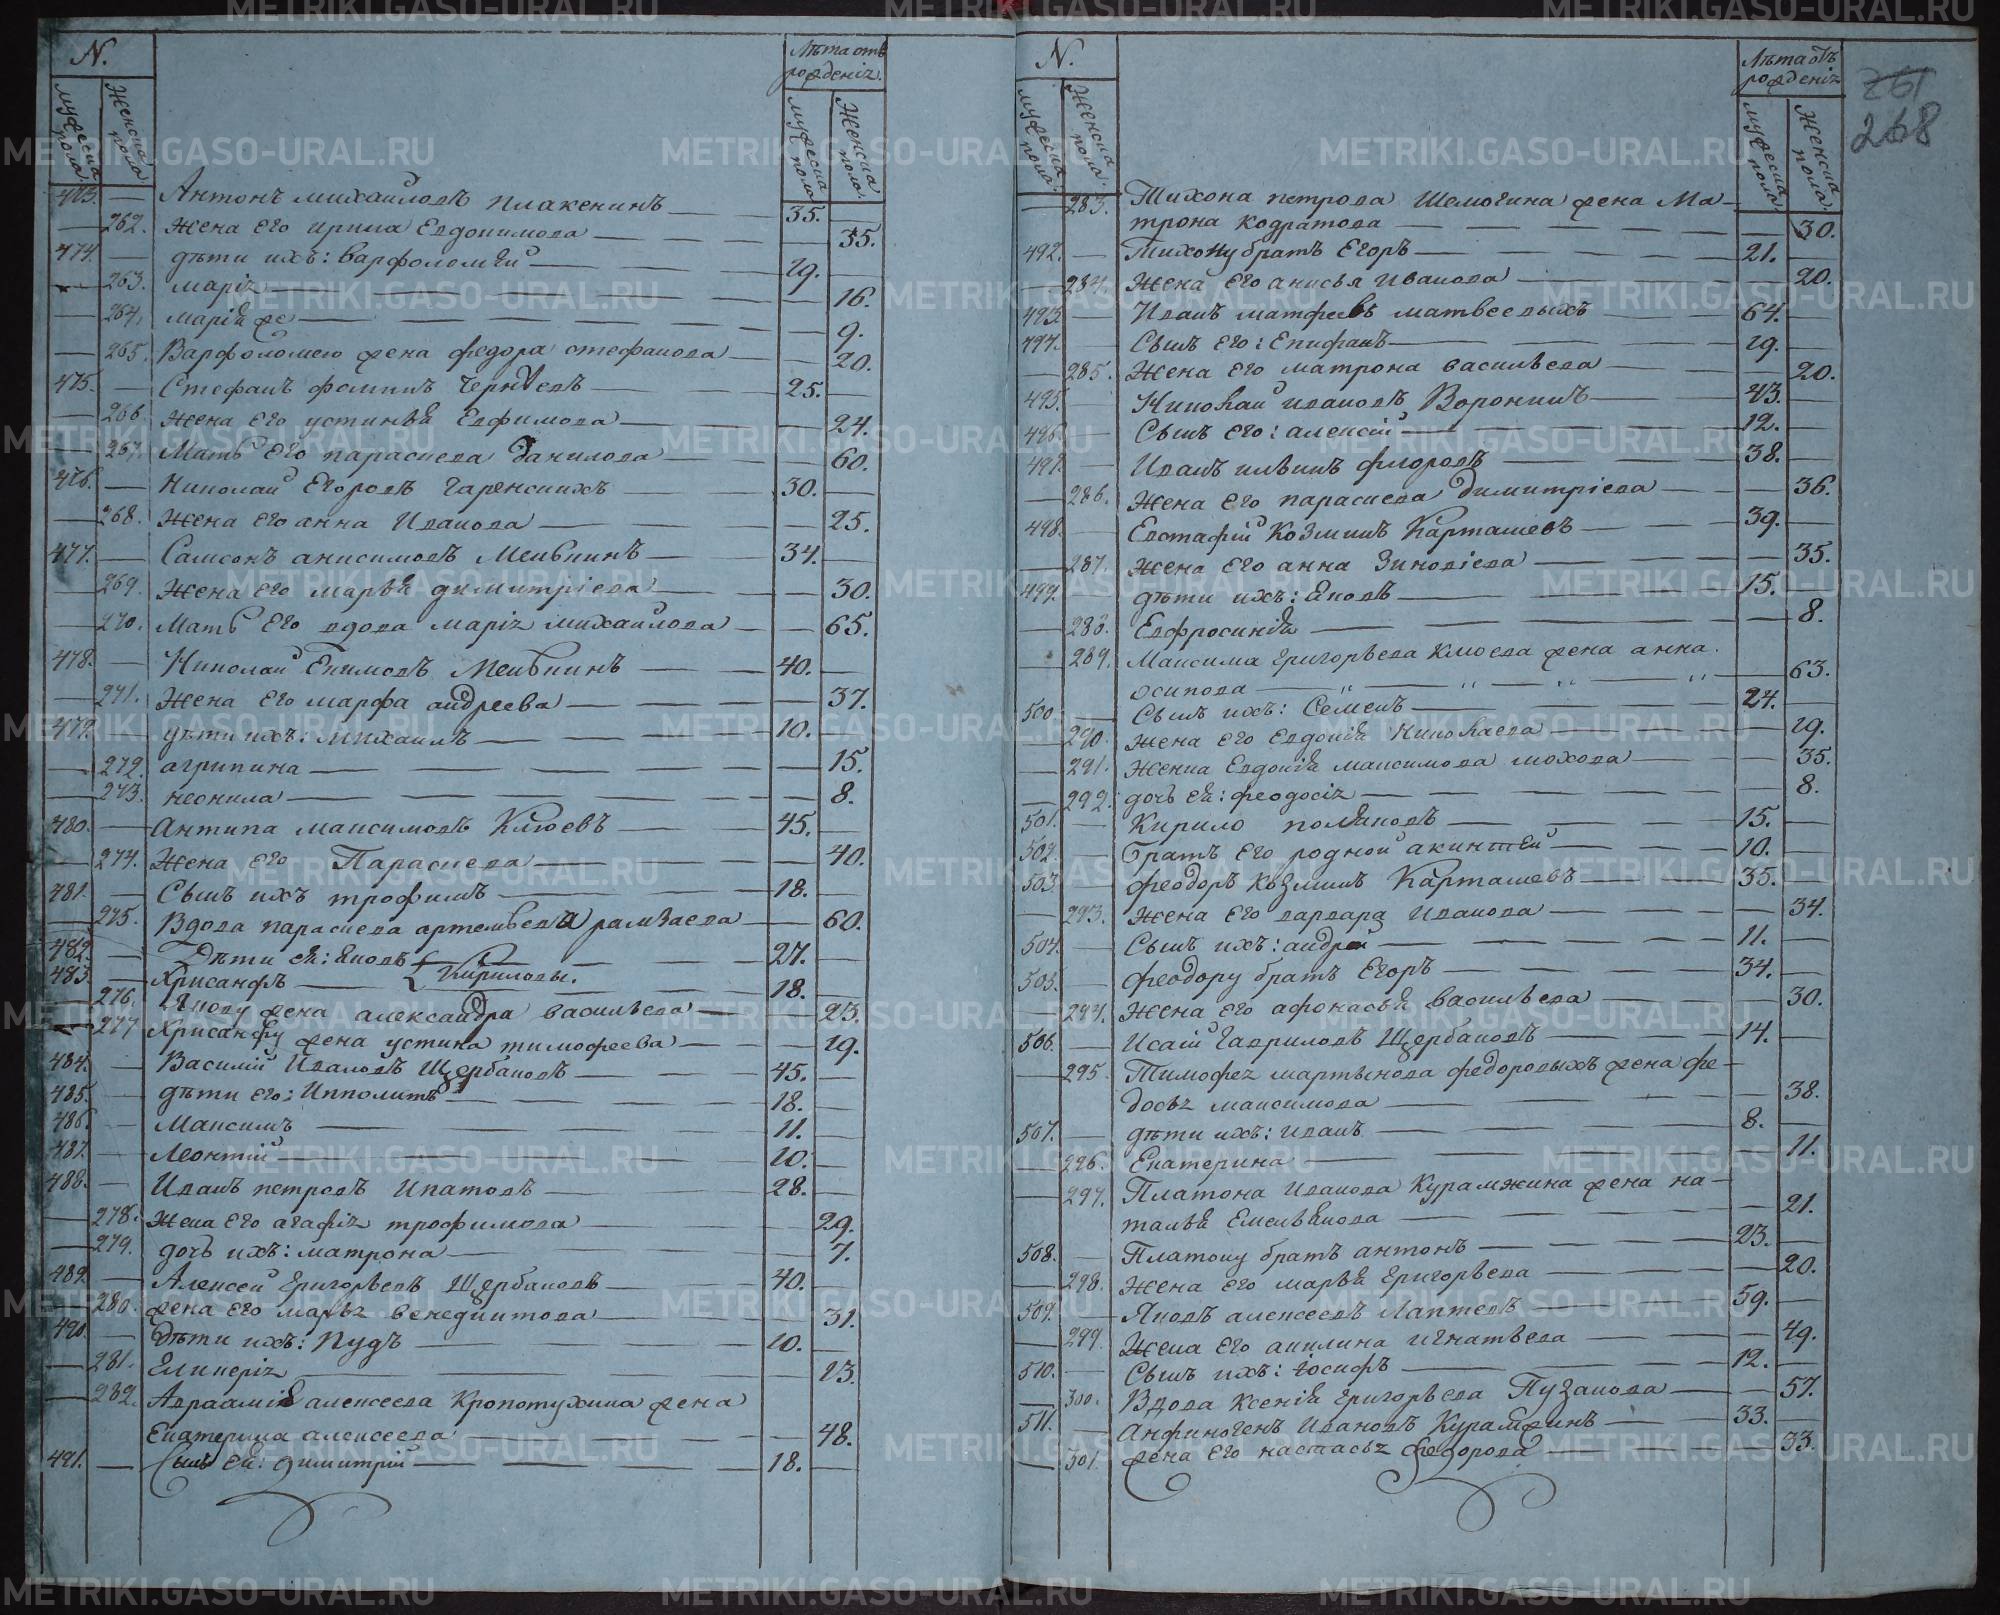 N.
Лѣта отъ рожденія.
мужеска пола.
Женска пола.
мужеска пола
Женска пола.
473. — Антонъ михайловъ плакенинъ — 35. —
— 262. Жена его ирина Евдокимова — — 35.
474. — дѣти ихъ: варфоломей — 19. —
— 263. марія — — 16.
— 264. марія же — — 9.
— 265. Варфоломею жена федора стефанова — — 20.
475. — Стефанъ фоминъ Черняевъ — 25. —
— 266. жена его устинья Ефимова — — 24.
— 267. Мать его параскева Данилова — — 60.
476. — Николай Егоровъ гаренскихъ — 30. —
— 268. жена его анна Иванова — — 25.
477. — Самсонъ анисимовъ Мельнинъ — 34. —
— 269. Жена его марья димитріева — — 30.
— 270. Мать его вдова марія михайлова — — 65.
478. — Николай Екимовъ Мельнинъ — 40. —
— 271. Жена его марфа андреева — — 37.
479. — дѣти ихъ: михаилъ — 10. —
— 272. агрипина — — 15.
— 273. неонила — — 8.
480. — Антипа максимовъ Клюевъ — 45. —
— 274. Жена его Параскева — — 40.
481. — Сынъ ихъ трофимъ — 18. —
— 275. Вдова параскева артемьева рамзаева — — 60.
482. — Дѣти ей: яковъ — 27. —
483. — Хрисанфъ — { Кириловы. 18. —
— 276. Якову жена александра васильева — — 23.
— 277 Хрисанфу жена устина тимофеева — — 19.
484. — Василій Ивановъ Щербаковъ — 45. —
485. — дѣти его: Ипполитъ — 18. —
486. — Максимъ — 11. —
487. — Леонтій — 10. —
488. — Иванъ петровъ Ипатовъ — 28. —
— 278. жена его агафія трофимова — — 29.
— 279. дочь ихъ: матрона — — 7.
489. — Алексей григорьевъ Щербаковъ — 40. —
— 280. жена его марья венедиктова — — 31.
490. — Дѣти ихъ: Пудъ — 10. —
— 281. Гликерія — — 23.
— 282. Авраамія алексеева Кропотухина жена
Екатерина алексеева — — 48.
491. — Сынъ ей: димитрій — 18. —
N.
Лѣта отъ рожденія
мужеска пола.
Женска пола.
мужеска пола
Женска пола.
261
268
— 283. Тихона петрова Шемогина жена Ма-
трона кодратова — — 30.
492. — Тихону братъ Егоръ — 21. —
— 284. Жена его анисья Иванова — — 20.
493. — Иванъ матфеевъ матвеевыхъ — 64. —
494. — Сынъ его: Епифанъ — 19. —
— 285. Жена его матрона васильева — — 20.
495. — Николай ивановъ Воронинъ — 43. —
496. — Сынъ его: алексій — 12. —
497. — Иванъ ильинъ флоровъ — 38. —
— 286. Жена его параскева димитріева — — 36.
498. — Евстафій Козминъ Карташевъ — 39. —
— 287. Жена его анна Зиновіева — — 35.
499. — дѣти ихъ: яковъ — 15. —
— 288. Евфросинія — — 8.
— 289. Максима григорьева Клюева жена анна
осипова — — 63.
500. — Сынъ ихъ: Семенъ — 24. —
— 290. жена его Евдокія Николаева — — 19.
— 291. Женка Евдокія максимова мохова — — 35.
— 292. дочь ей: феодосія — — 8.
501. — Кирило поляковъ — 15. —
502. — братъ его родной акинтей — 10. —
503. — феодоръ козминъ Карташевъ — 35. —
— 293. Жена его варвара Иванова — — 34.
504. — Сынъ ихъ: андрей — 11. —
505. — феодору братъ Егоръ — 34. —
— 294. Жена его афонасья васильева — — 30.
506. — Исаій гавриловъ Щербаковъ — 14. —
— 295. Тимофея мартынова федоровыхъ жена фе-
досья максимова — — 38.
507. — дѣти ихъ: иванъ — 8. —
— 296. Екатерина — — 11.
— 297. Платона Иванова Куражмина жена на-
талья Емельянова — — 21.
508. — Платону братъ антонъ — 23. —
— 298. жена его марья григорьева — — 20.
509. — Яковъ алексеевъ Лаптевъ — 59. —
— 299. Жена его акилина игнатьева — — 49.
510. — Сынъ ихъ: іосифъ — 12. —
— 300. Вдова Ксенія григорьева Пузакова — — 57.
511. — Анфиногенъ Ивановъ Куражминъ — 33. —
— 301. жена его настасья федорова — — 33.